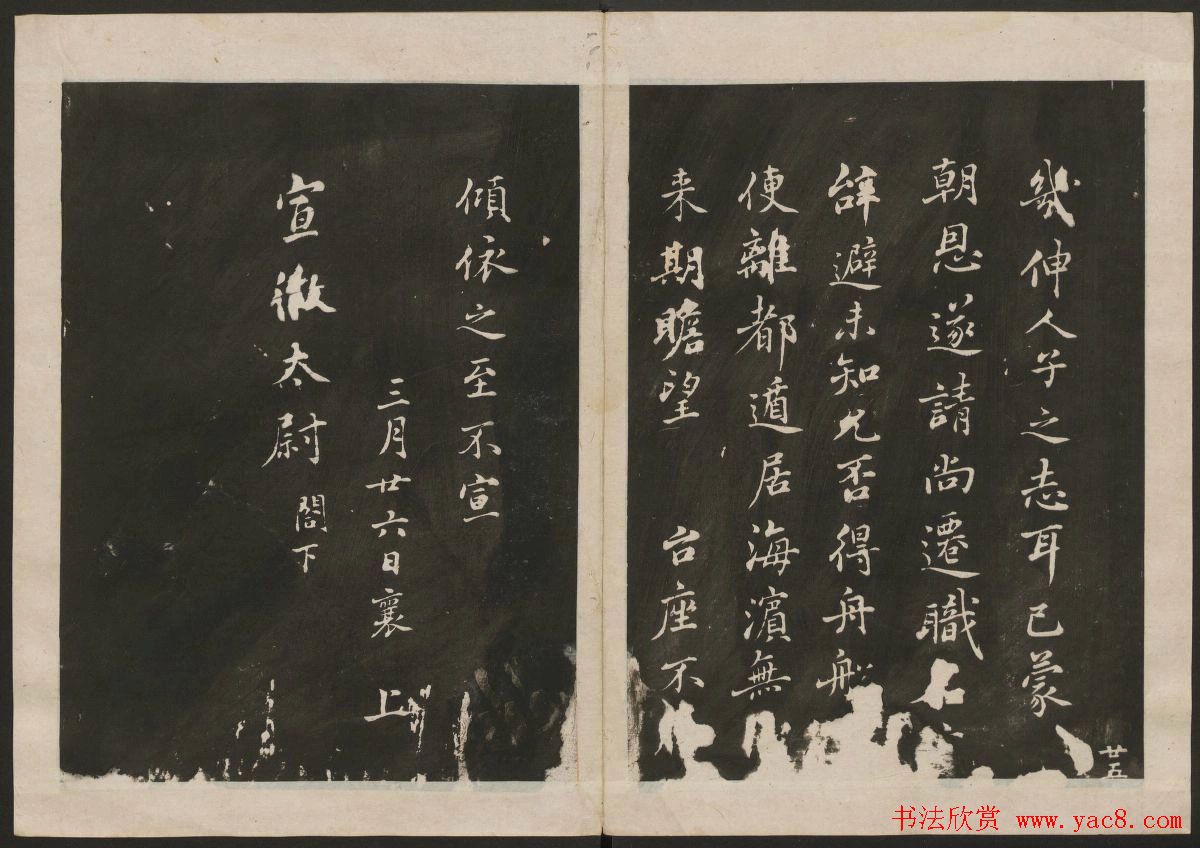 幾伸人子之志耳已蒙
朝恩遂請尚遷職名
辞避未知允否得舟船
便離都遁居海濱無
来期瞻望 台座不
傾依之至不宣
三月廿六日襄 上
宣徽太尉 閤下
廿五
书法欣赏 www.yac8.com